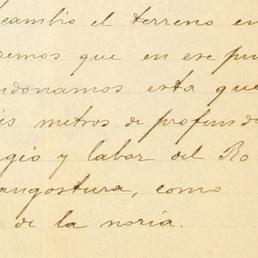 cambio el terreno en
remos que en ese pu
ndonamos esta que
is metros de profund
gio y labor del Ro
angostura, como
de la noria.